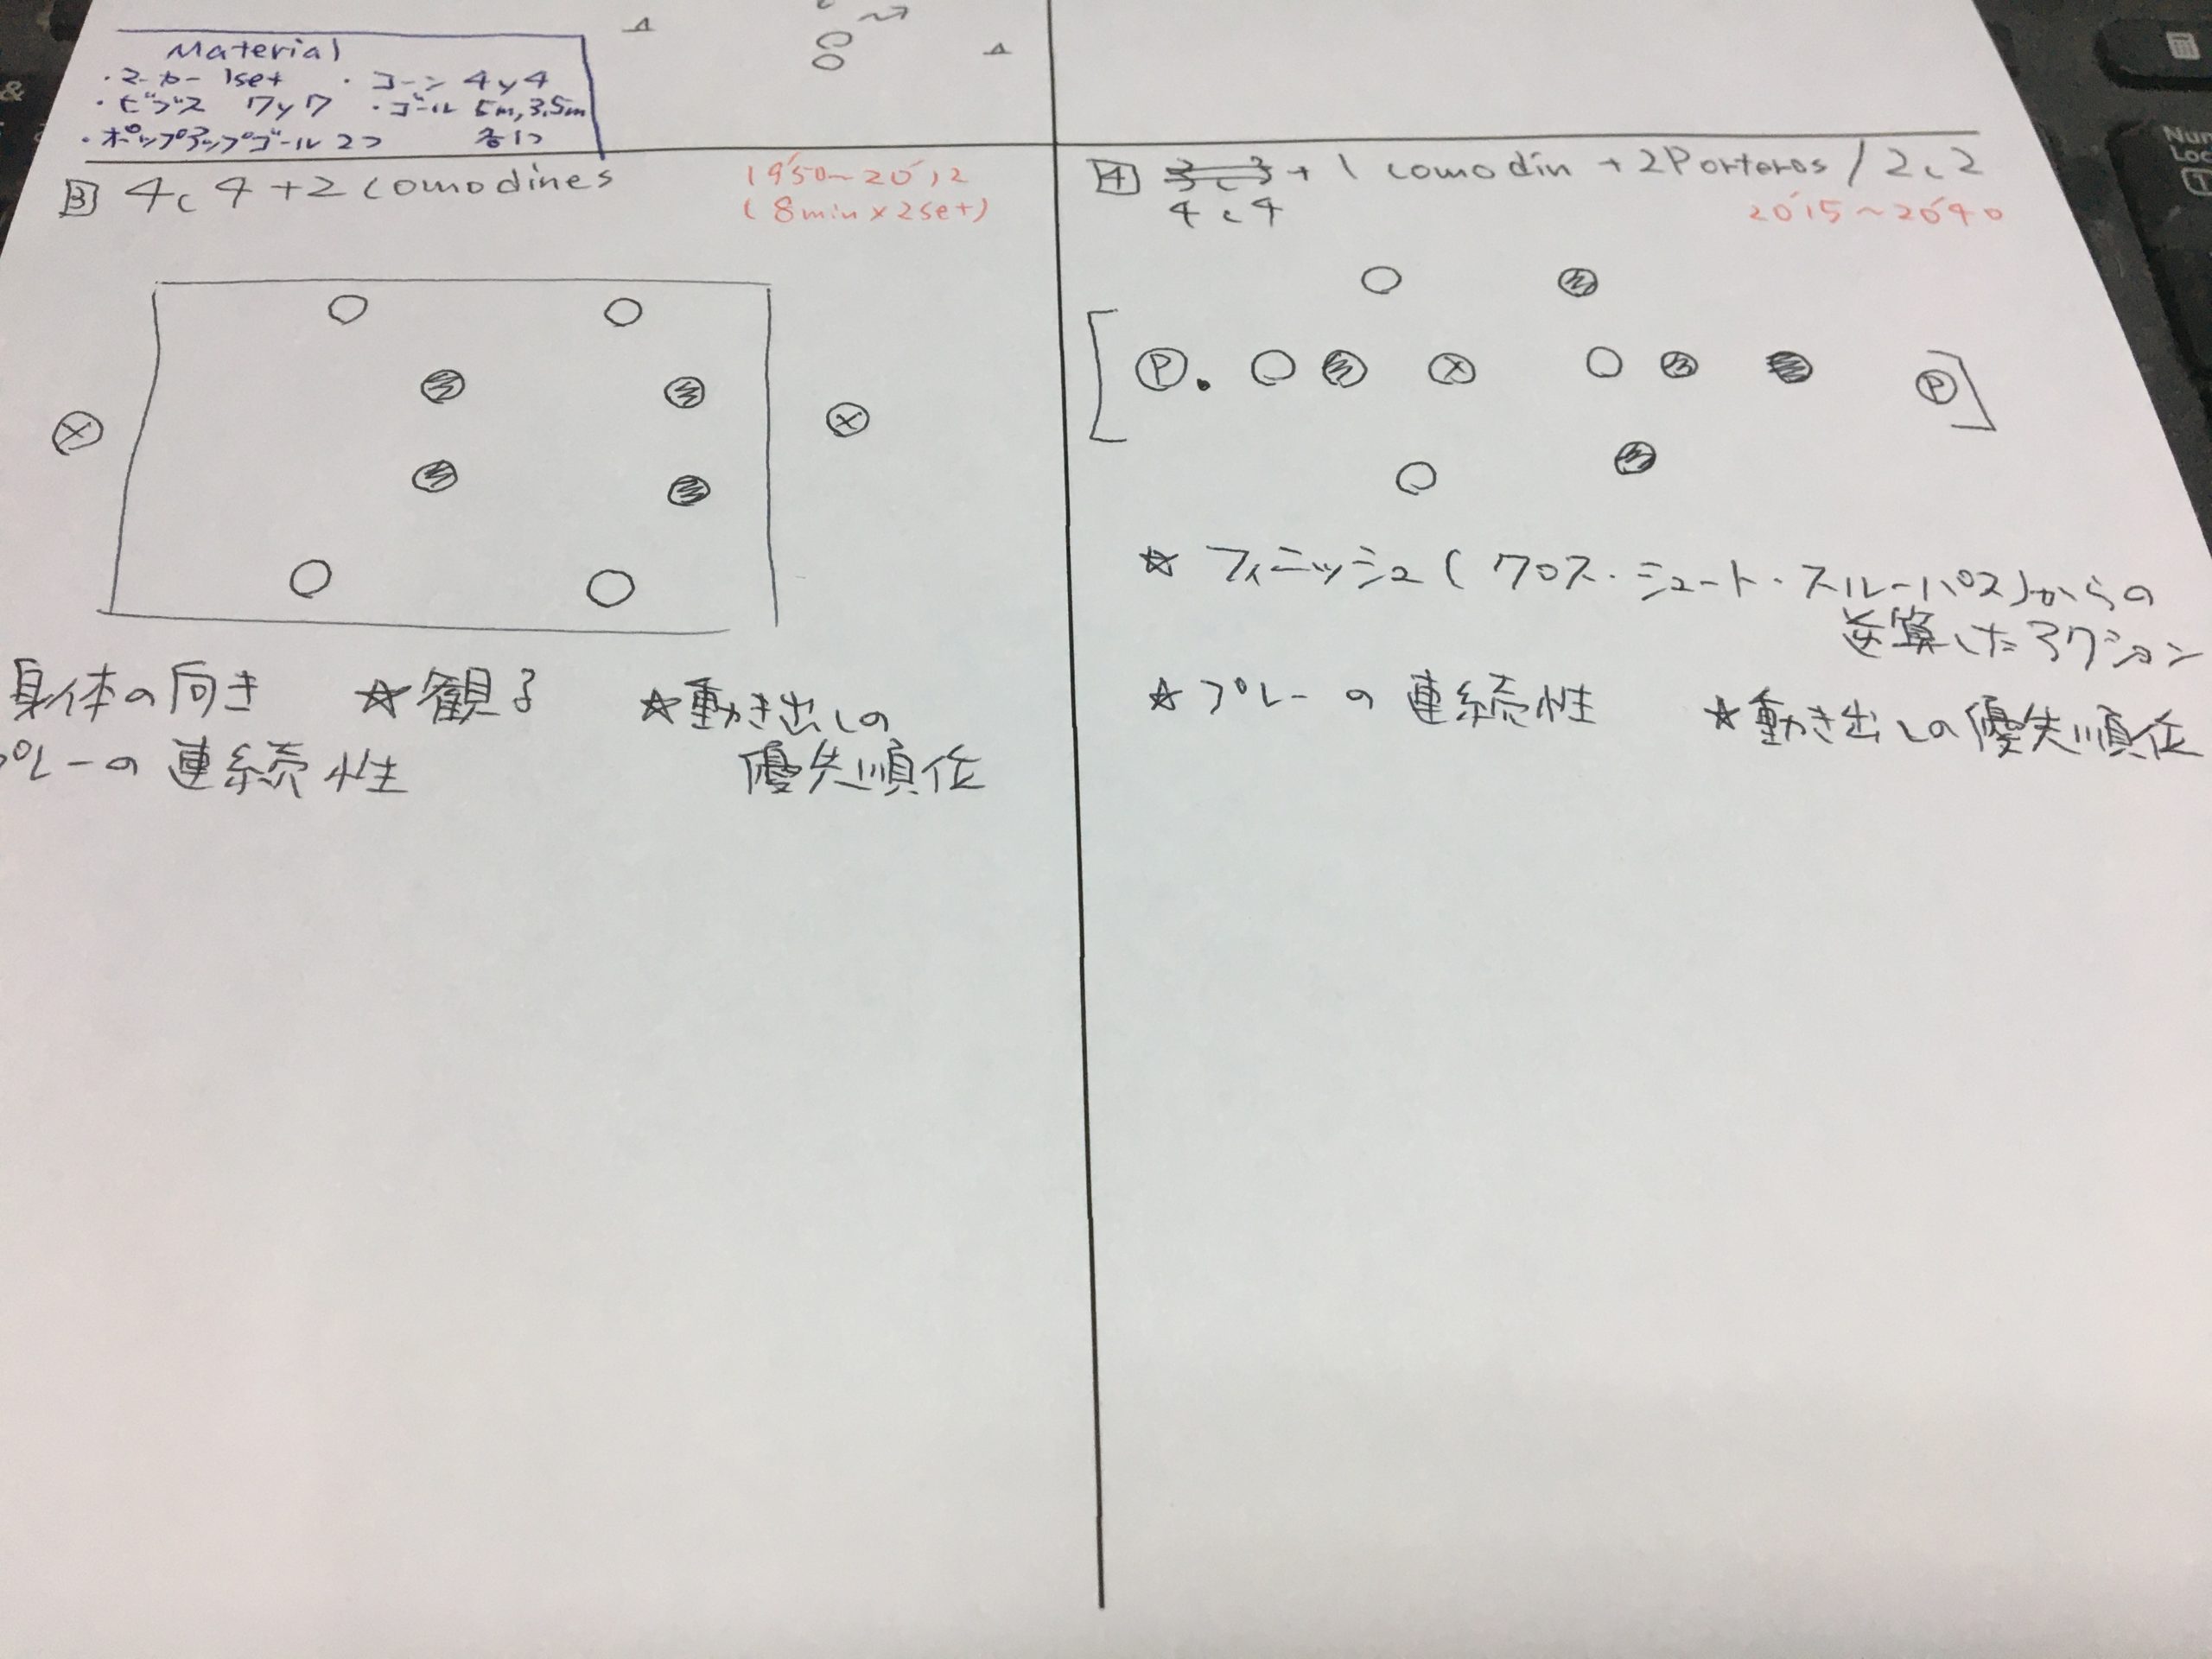 Material
・マーカー 1set ・コーン 4y4
・ビブス 7y7 ・ゴール 5m, 3.5m
・ポップアップゴール 2つ 各1つ
3 4c4+2comodines
19'50~20'12
(8min×2set)
X X
4 3c3+1comodin+2Porteros/2c2
4c4
20'15~20'40
P X P
☆フィニッシュ(クロス・シュート・スルーパス)からの
逆算したアクション
☆プレーの連続性 ☆動き出しの優先順位
身体の向き ☆観る ☆動き出しの
優先順位
プレーの連続性
Num
Loc
&